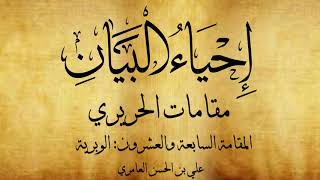 إِحْيَاءُ الْبَيَانِ
مقامات الحريري
المقامة السابعة والعشرون: الوبرية
علي بن الحسن العامري